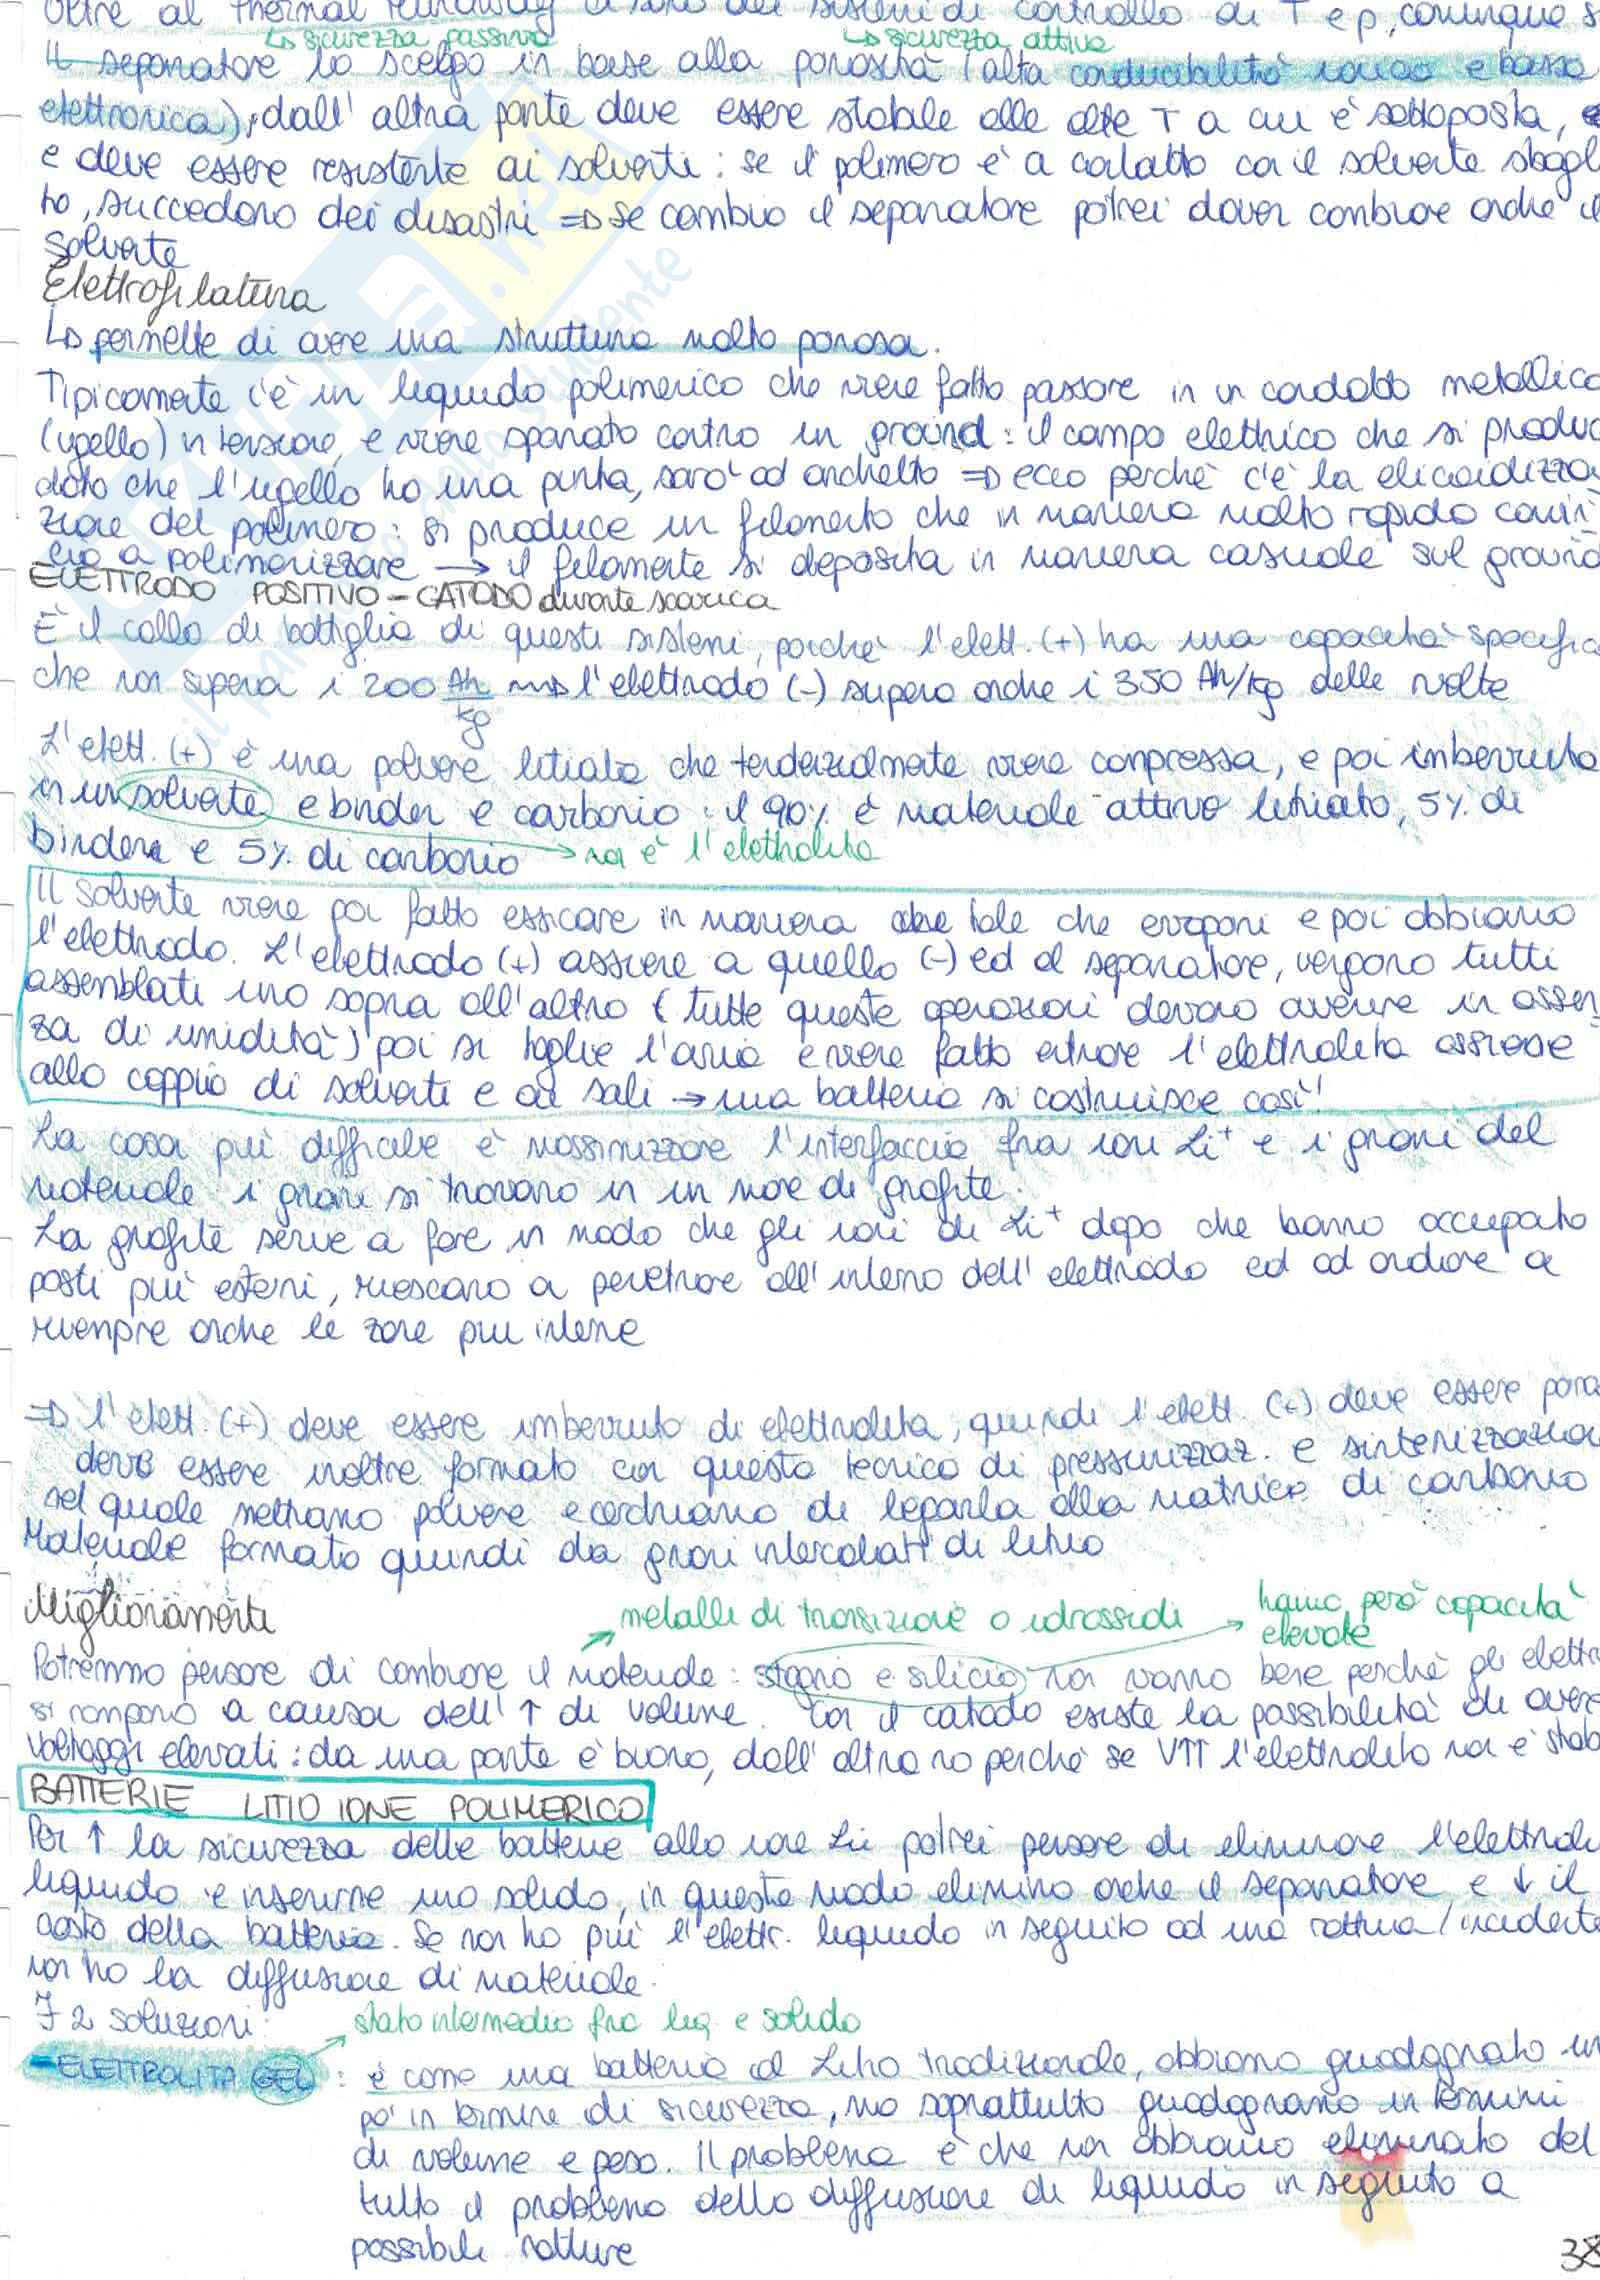 Oltre al thermal runaway ci sono dei sistemi di controllo di T e p, comunque s
↳ sicurezza passiva ↳ sicurezza attiva
Il separatore lo scelgo in base alla porosità (alta conducibilità ionica e bassa
elettronica), dall'altra parte deve essere stabile alle alte T a cui è sottoposta,
e deve essere resistente ai solventi: se il polimero è a contatto con il solvente sbagl
to, succedono dei disastri ⇒ se cambio il separatore potrei dover cambiare anche il
solvente
Elettrofilatura
↳ permette di avere una struttura molto porosa.
Tipicamente c'è un liquido polimerico che viene fatto passare in un condotto metallico
(ugello) in tensione, e viene sparato contro un ground: il campo elettrico che si produc
dato che l'ugello ha una punta, sarà ad anelletto ⇒ ecco perchè c'è la elicoidizza
zione del polimero: si produce un filamento che in maniera molto rapida comin
cia a polimerizzare → il filamento si deposita in maniera casuale sul ground
ELETTRODO POSITIVO - CATODO durante scarica
È il collo di bottiglia di questi sistemi, poichè l'elett. (+) ha una capacità specifica
che non supera i 200 Ah/kg ⇝ l'elettrodo (-) supera anche i 350 Ah/kg delle volte
L'elett. (+) è una polvere litiata che tendenzialmente viene compressa, e poi imbevuta
in un solvente e binder e carbonio: il 90% è materiale attivo litiato, 5% di
bindere e 5% di carbonio → non è l'elettrolita
Il solvente viene poi fatto essicare in maniera tale che evapori e poi abbiamo
l'elettrodo. L'elettrodo (+) assieme a quello (-) ed al separatore, vengono tutti
assemblati uno sopra all'altro (tutte queste operazioni devono avvenire in assen
za di umidità) poi si toglie l'aria e viene fatto entrare l'elettrolita assieme
alla coppia di solventi e ai sali → una batteria si costruisce così!
La cosa più difficile è massimizzare l'interfaccia fra ioni Li⁺ e i grani del
materiale i grani si trovano in un mare di grafite.
La grafite serve a fare in modo che gli ioni di Li⁺ dopo che hanno occupato
posti più esterni, riescano a penetrare all'interno dell'elettrodo ed ad andare a
riempire anche le zone più interne
⇒ l'elett. (+) deve essere imbevuto di elettrolita, quindi l'elett. (+) deve essere poro
deve essere inoltre formato con questa tecnica di pressurizzaz. e sinterizzazion
nel quale mettiamo polvere e cerchiamo di legarla alla matrice di carbonio
Materiale formato quindi da grani intercalati di litio
Miglioramenti
metalli di transizione o idrossidi → hanno però capacità
elevate
Potremmo pensare di cambiare il materiale: stagno e silicio non vanno bene perchè gli elettr
si rompono a causa dell'↑ di volume. Con il catodo esiste la possibilità di avere
voltaggi elevati: da una parte è buono, dall'altra no perchè se V↑↑ l'elettrolita non è stab
BATTERIE LITIO IONE POLIMERICO
Per ↑ la sicurezza delle batterie allo ione Li potrei pensare di eliminare l'elettroli
liquido e inserirne uno solido, in questo modo elimino anche il separatore e ↓ il
costo della batteria. Se non ho più l'elettr. liquido in seguito ad una rottura/incidente
non ho la diffusione di materiale.
∃ 2 soluzioni: stato intermedio fra liq e solido
- ELETTROLITA GEL: è come una batteria al Litio tradizionale, abbiamo guadagnato un
pò in termine di sicurezza, ma soprattutto guadagnano in termini
di volume e peso. Il problema è che non abbiamo eliminato del
tutto il problema della diffusione di liquido in seguito a
possibili rotture
38